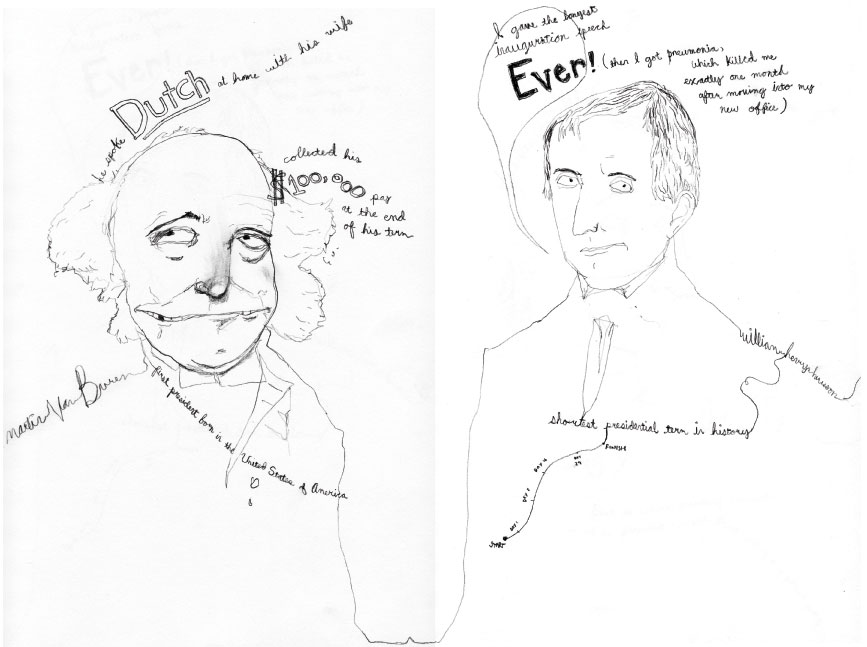 he spoke Dutch at home with his wife
collected his
$100,000 pay
at the end
of his term
Martin Van Buren
first president born in the United States of America
I gave the longest
inauguration speech
Ever! (then I got pneumonia,
which killed me
exactly one month
after moving into my
new office)
william henry harrison
shortest presidential term in history
START
DAY 1
FINISH!